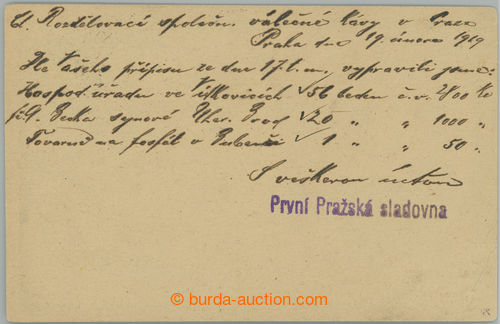 Sl. Rozdělovací společn. válečné kávy v Praze
Praha dne 19 února 1919
Dle Vašeho přípisu ze dne 17. t. m. vypravili jsme:
Hospod. úřadu ve Vítkovicích √56 beden č.v. 2800 Kč
fi. Becka synové Uher. Brod √20 " " 1000 "
Továrně na fosfát v Bubenči √1 " " 50 "
S veškerou úctou
První Pražská sladovna
© burda-auction.com